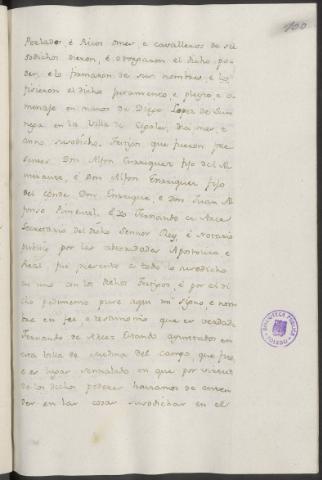 100
Perlados, é Ricos omes, e cavalleros de su
sodichos dieron, é otorgaron el dicho po-
der, e lo firmaron de sus nombres, e lo
ficieron el dicho juramento, e pleyto, e o
menaje en manos de Diego Lopez de Zuñi
ga en la Villa de dia mes, e
anno susodicho. Testigos que fueron pre
sentes Don Alfon Enrriquez fijo del Al
mirante, é Don Alfon Enrriquez fijo
del Conde Don Enrrique, e Don Juan Al
fonso Pimentel. E Yo Fernando de Arce
Secretario del dicho Sennor Rey, é Notario
publico por las abtoridades Apostolica e
Real, fui presente a todo lo susodicho
en uno con los dichos Testigos, é por el di
cho pedimiento puse aqui mi Signo, e nom
bre en fee, e testimonio que es verdad
Fernando de Alcoz Estando ayuntados en
esta Villa de Medina del Campo, que fue,
e es lugar sennalado en que por virtud
de los dichos poderes haviamos de enten
der en las cosas susodichas en el
BIBLIOTECA PUBLICA
TOLEDO